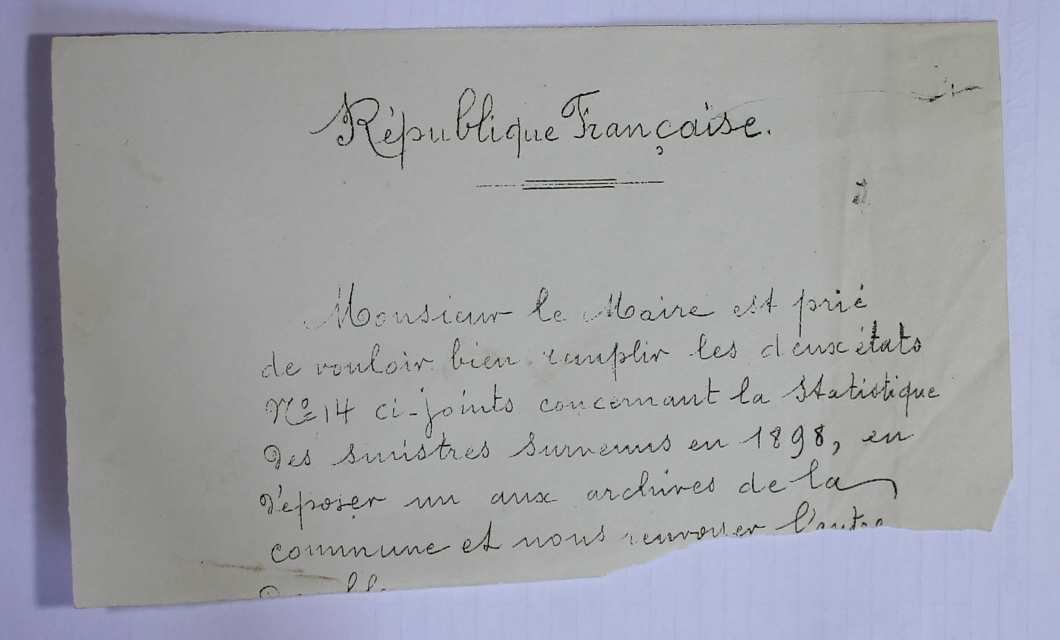 République Française.
Monsieur le Maire est prié
de vouloir bien remplir les deux états
Nº 14 ci-joints concernant la Statistique
des sinistres survenus en 1898, en
déposer un aux archives de la
commune et nous renvoyer l'autre